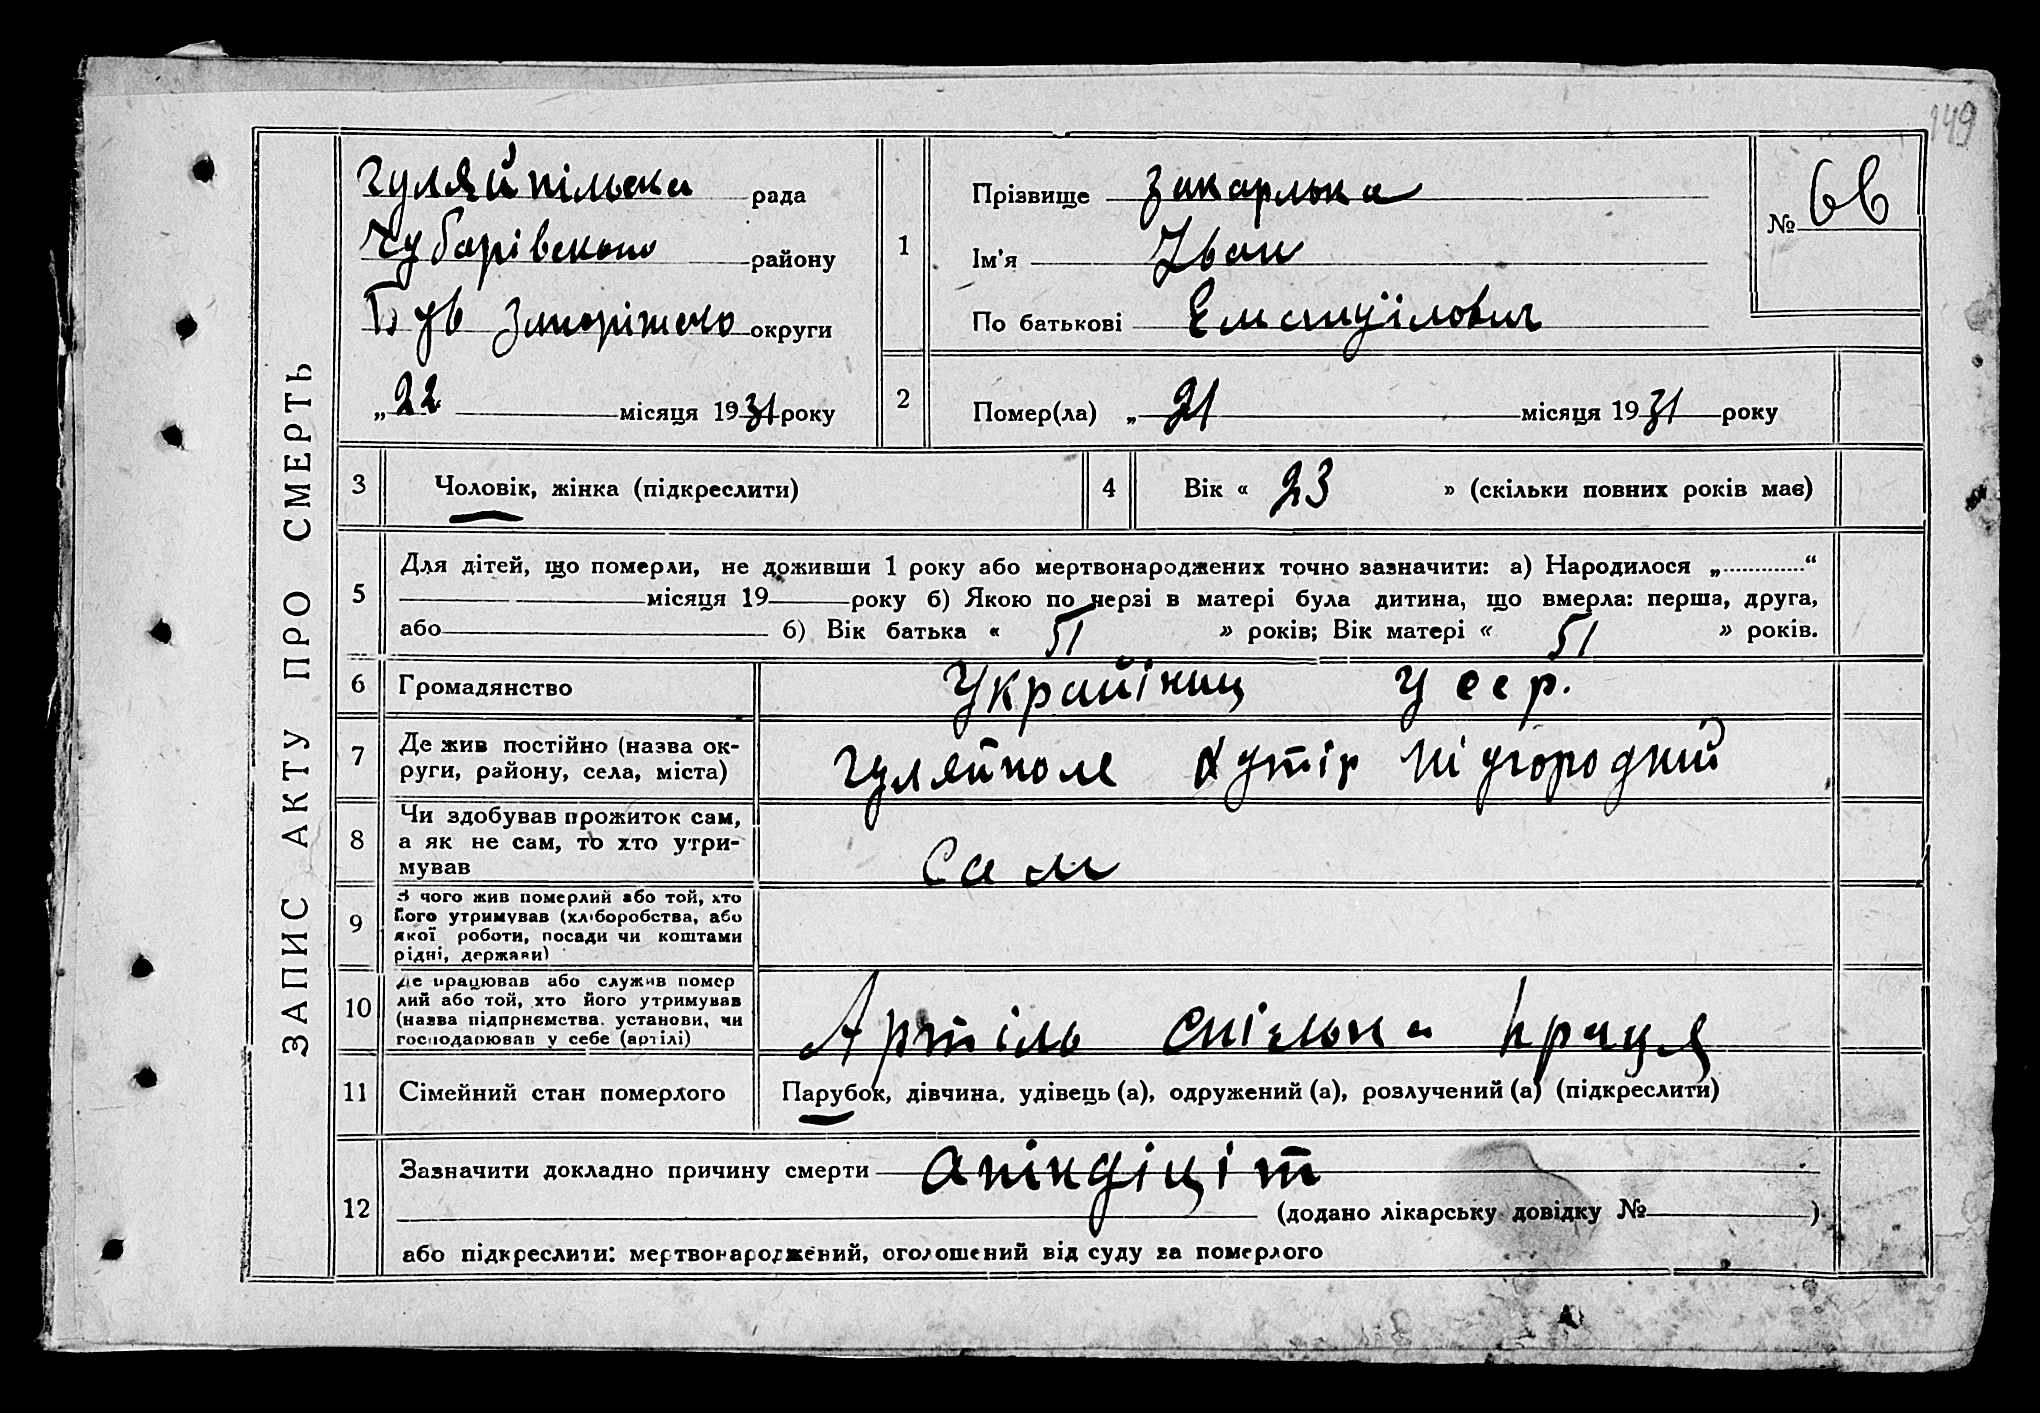 149
ЗАПИС АКТУ ПРО СМЕРТЬ
Гуляйпільска рада
Чубарівського району
Був Запоріжського округи
„22 місяця 1931 року
1
Прізвище Закарлька
Ім'я Іван
По батькові Емануїлович
№ 66
2
Помер(ла) „ 21 місяця 1931 року
3 Чоловік, жінка (підкреслити)
4 Вік « 23 » (скільки повних років має)
5
Для дітей, що померли, не доживши 1 року або мертвонароджених точно зазначити: а) Народилося „............“
місяця 19 року б) Якою по черзі в матері була дитина, що вмерла: перша, друга,
або б) Вік батька « 51 » років; Вік матері « 51 » років.
6 Громадянство Украйіниц Усср.
7
Де жив постійно (назва ок-
руги, району, села, міста)
Гуляйполе Хутір Підгородний
8
Чи здобував прожиток сам,
а як не сам, то хто утри-
мував
Сам
9
З чого жив померлий або той, хто
його утримував (хліборобства, або
якої роботи, посади чи коштами
рідні, держави)
10
Де працював або служив помер
лий або той, хто його утримував
(назва підприємства, установи, чи
господарював у себе (артілі)
Артіль спільна праця
11 Сімейний стан померлого Парубок, дівчина, удівець (а), одружений (а), розлучений (а) (підкреслити)
12
Зазначити докладно причину смерти апіндіціт
(додано лікарську довідку № )
або підкреслити: мертвонароджений, оголошений від суду за померлого